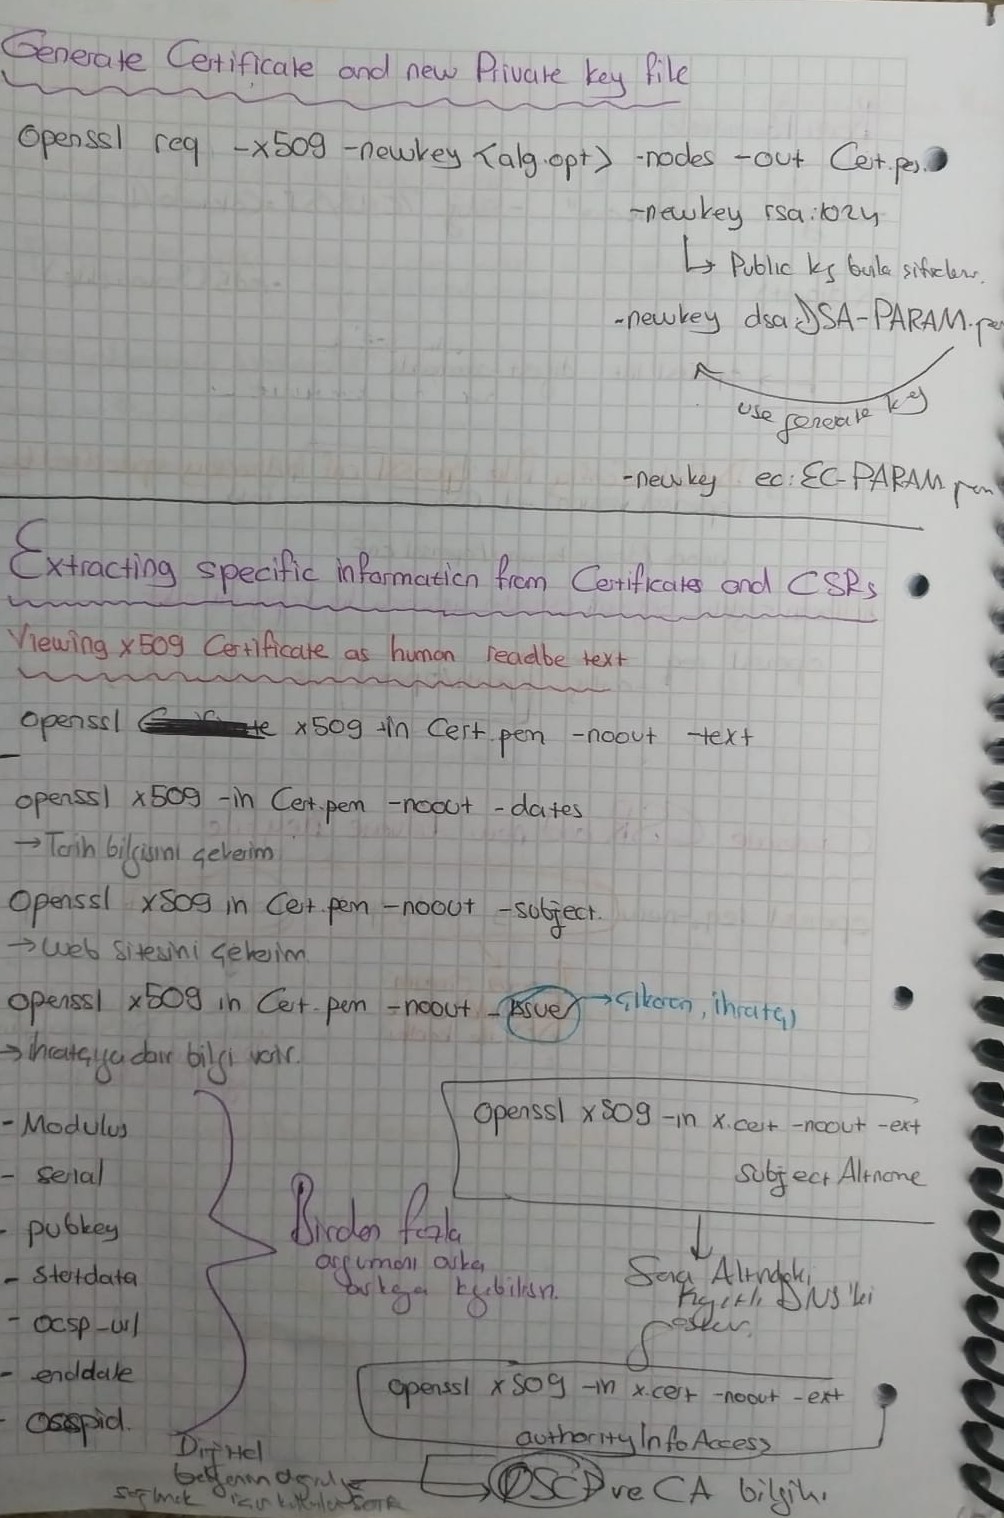 Generate Certificate and new Private key file
Openssl req -x509 -newkey <alg.opt> -nodes -out Cert.pe
-newkey rsa:1024
↳ Public
-newkey dsa:DSA-PARAM.pe
use generate key
-newkey ec:EC-PARAM.pem
Extracting specific information from Certificates and CSRs
Viewing x509 Certificate as human readbe text
openssl x509 -in Cert.pem -noout -text
openssl x509 -in Cert.pem -noout -dates
→ Tarih bilgisini getiririm
Openssl x509 in Cert.pem -noout -subject.
→ Web sitesini getiririm
Openssl x509 in Cert.pem -noout -issuer → çıkaran, ihraççı
→ ihraççıya dair bilgi verir.
- Modulus
- serial
- pubkey
- startdata
- ocsp_url
- enddate
- Ocspid.
Birden fazla
argümanı arka
arkaya
openssl x509 -in x.cert -noout -ext
subjectAltname
↓
Sona Altındaki
Kayıtlı DNS'ki
gösterir.
openssl x509 -in x.cert -noout -ext
authorityInfoAccess
→ OSCP ve CA bilgiki.
Dijital